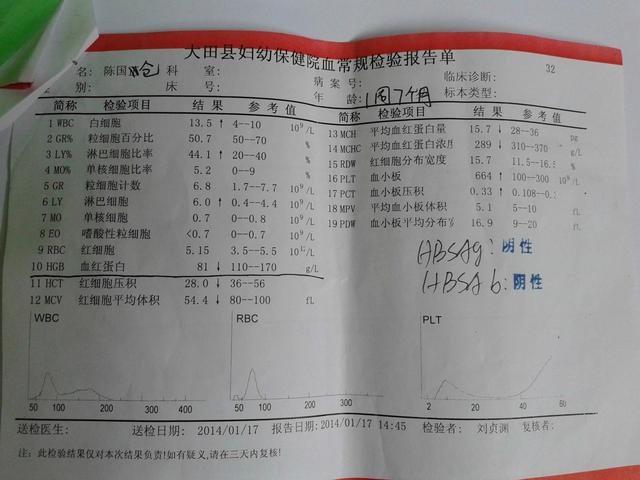 大田县妇幼保健院血常规检验报告单
名: 陈国 科 室: 病案号: 临床诊断: 32
别: 床 号: 年 龄: 1周7个月 标本类型:
简称 检验项目 结 果 参 考 值 简称 检验项目 结 果 参 考 值
1 WBC 白细胞 13.5 ↑ 4--10 10^9/L
2 GR% 粒细胞百分比 50.7 50--70 %
3 LY% 淋巴细胞比率 44.1 ↑ 20--40 %
4 MO% 单核细胞比率 5.2 0--9 %
5 GR 粒细胞计数 6.8 1.7--7.7 10^9/L
6 LY 淋巴细胞 6.0 ↑ 0.4--4.4 10^9/L
7 MO 单核细胞 0.7 0--0.8 10^9/L
8 EO 嗜酸性粒细胞 <0.7 0--0.7 10^9/L
9 RBC 红细胞 5.15 3.5--5.5 /L
10 HGB 血红蛋白 81 ↓ 110--170 g/L
11 HCT 红细胞压积 28.0 ↓ 36--56
12 MCV 红细胞平均体积 54.4 ↓ 80--100 fL
13 MCH 平均血红蛋白量 15.7 ↓ 28--36 pg
14 MCHC 平均血红蛋白浓度 289 ↓ 310--370 g/L
15 RDW 红细胞分布宽度 15.7 11.5--16.5 %
16 PLT 血小板 664 ↑ 100--300 10^9/L
17 PCT 血小板压积 0.33 ↑ 0.108--0.
18 MPV 平均血小板体积 5.1 5--10 fL
19 PDW 血小板平均分布宽 16.9 9--20 fL
HBSAg: 阴性
HBSAb: 阴性
WBC RBC PLT
50 100 200 300 50 100 200 300 2 20 40 60
送检医生: 送检日期: 2014/01/17 报告日期: 2014/01/17 14:45 检验者: 刘贞渊 复核者:
注: 此检验结果仅对本次结果负责!如有疑义,请在三天内复核!